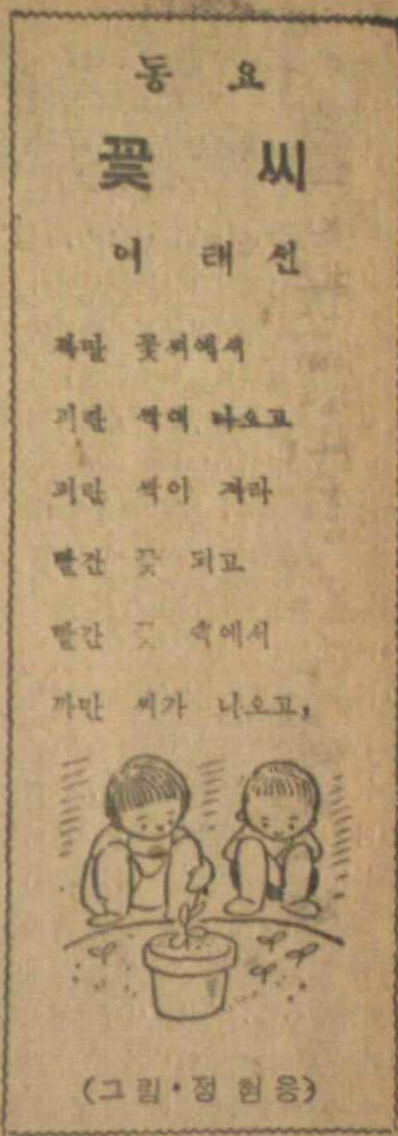 동 요
꽃 씨
어 태 선
까만 꽃씨에서
파란 싹이 나오고
파란 싹이 자라
빨간 꽃 되고
빨간 꽃 속에서
까만 씨가 나오고,
(그림•정 현웅)